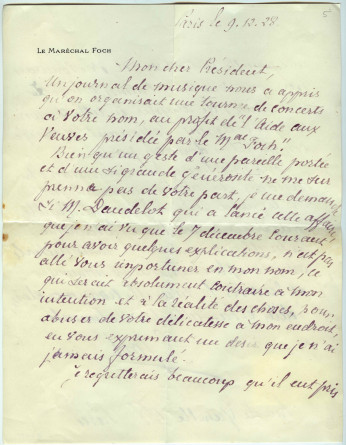 5
Paris le 9.12.28
LE MARÉCHAL FOCH
Mon cher Président,
Un journal de musique nous a appris
qu'on organisait une tournée de concerts
à votre nom, au profit de "l'Aide aux
Veuves présidée par le Mal Foch".
Bien qu'un geste d'une pareille portée
et d'une si grande générosité ne me sur
prenne pas de votre part, je me demande
si M. Dandelot qui a lancé cette affaire
que j'en ai vu que le 7 décembre courant
pour avoir quelques explications, n'est pas
allé vous importuner en mon nom, ce
qui serait absolument contraire à mon
intention et à la réalité des choses, pour
abuser de votre délicatesse à mon endroit,
en vous exprimant un désir que je n'ai
jamais formulé.
Je regretterais beaucoup qu'il eut pris